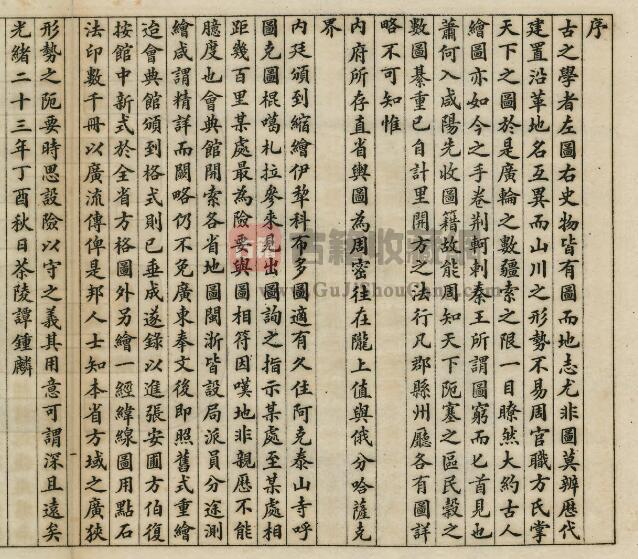 序
古之學者左圖右史物皆有圖而地志尤非圖莫辨歷代
建置沿革地名互異而山川之形勢不易周官職方氏掌
天下之圖於是廣輪之數疆索之限一目瞭然大約古人
繪圖亦如今之手卷荆軻刺秦王所謂圖窮而匕首見也
蕭何入咸陽先收圖籍故能周知天下阨塞之區民穀之
數圖綦重已自計里開方之法行凡郡縣州廳各有圖詳
略不可知惟
內府所存直省輿圖為周密往在隴上值與俄分哈薩克
界
內廷頒到縮繪伊犂科布多圖適有久住阿克泰山寺呼
圖克圖棍噶札拉參來見出圖詢之指示某處至某處相
距幾百里某處最為險要與圖相符因嘆地非親歷不能
臆度也會典館開索各省地圖閩浙皆設局派員分途測
繪咸謂精詳而闕略仍不免廣東奉文後即照舊式重繪
迨會典館頒到格式則已垂成遂錄以進張安圃方伯復
按館中新式於全省方格圖外另繪一經緯線圖用點石
法印數千冊以廣流傳俾是邦人士知本省方域之廣狹
形勢之阨要時思設險以守之義其用意可謂深且遠矣
光緒二十三年丁酉秋日茶陵譚鍾麟
古籍收藏網
www.GuJiShouCang.com